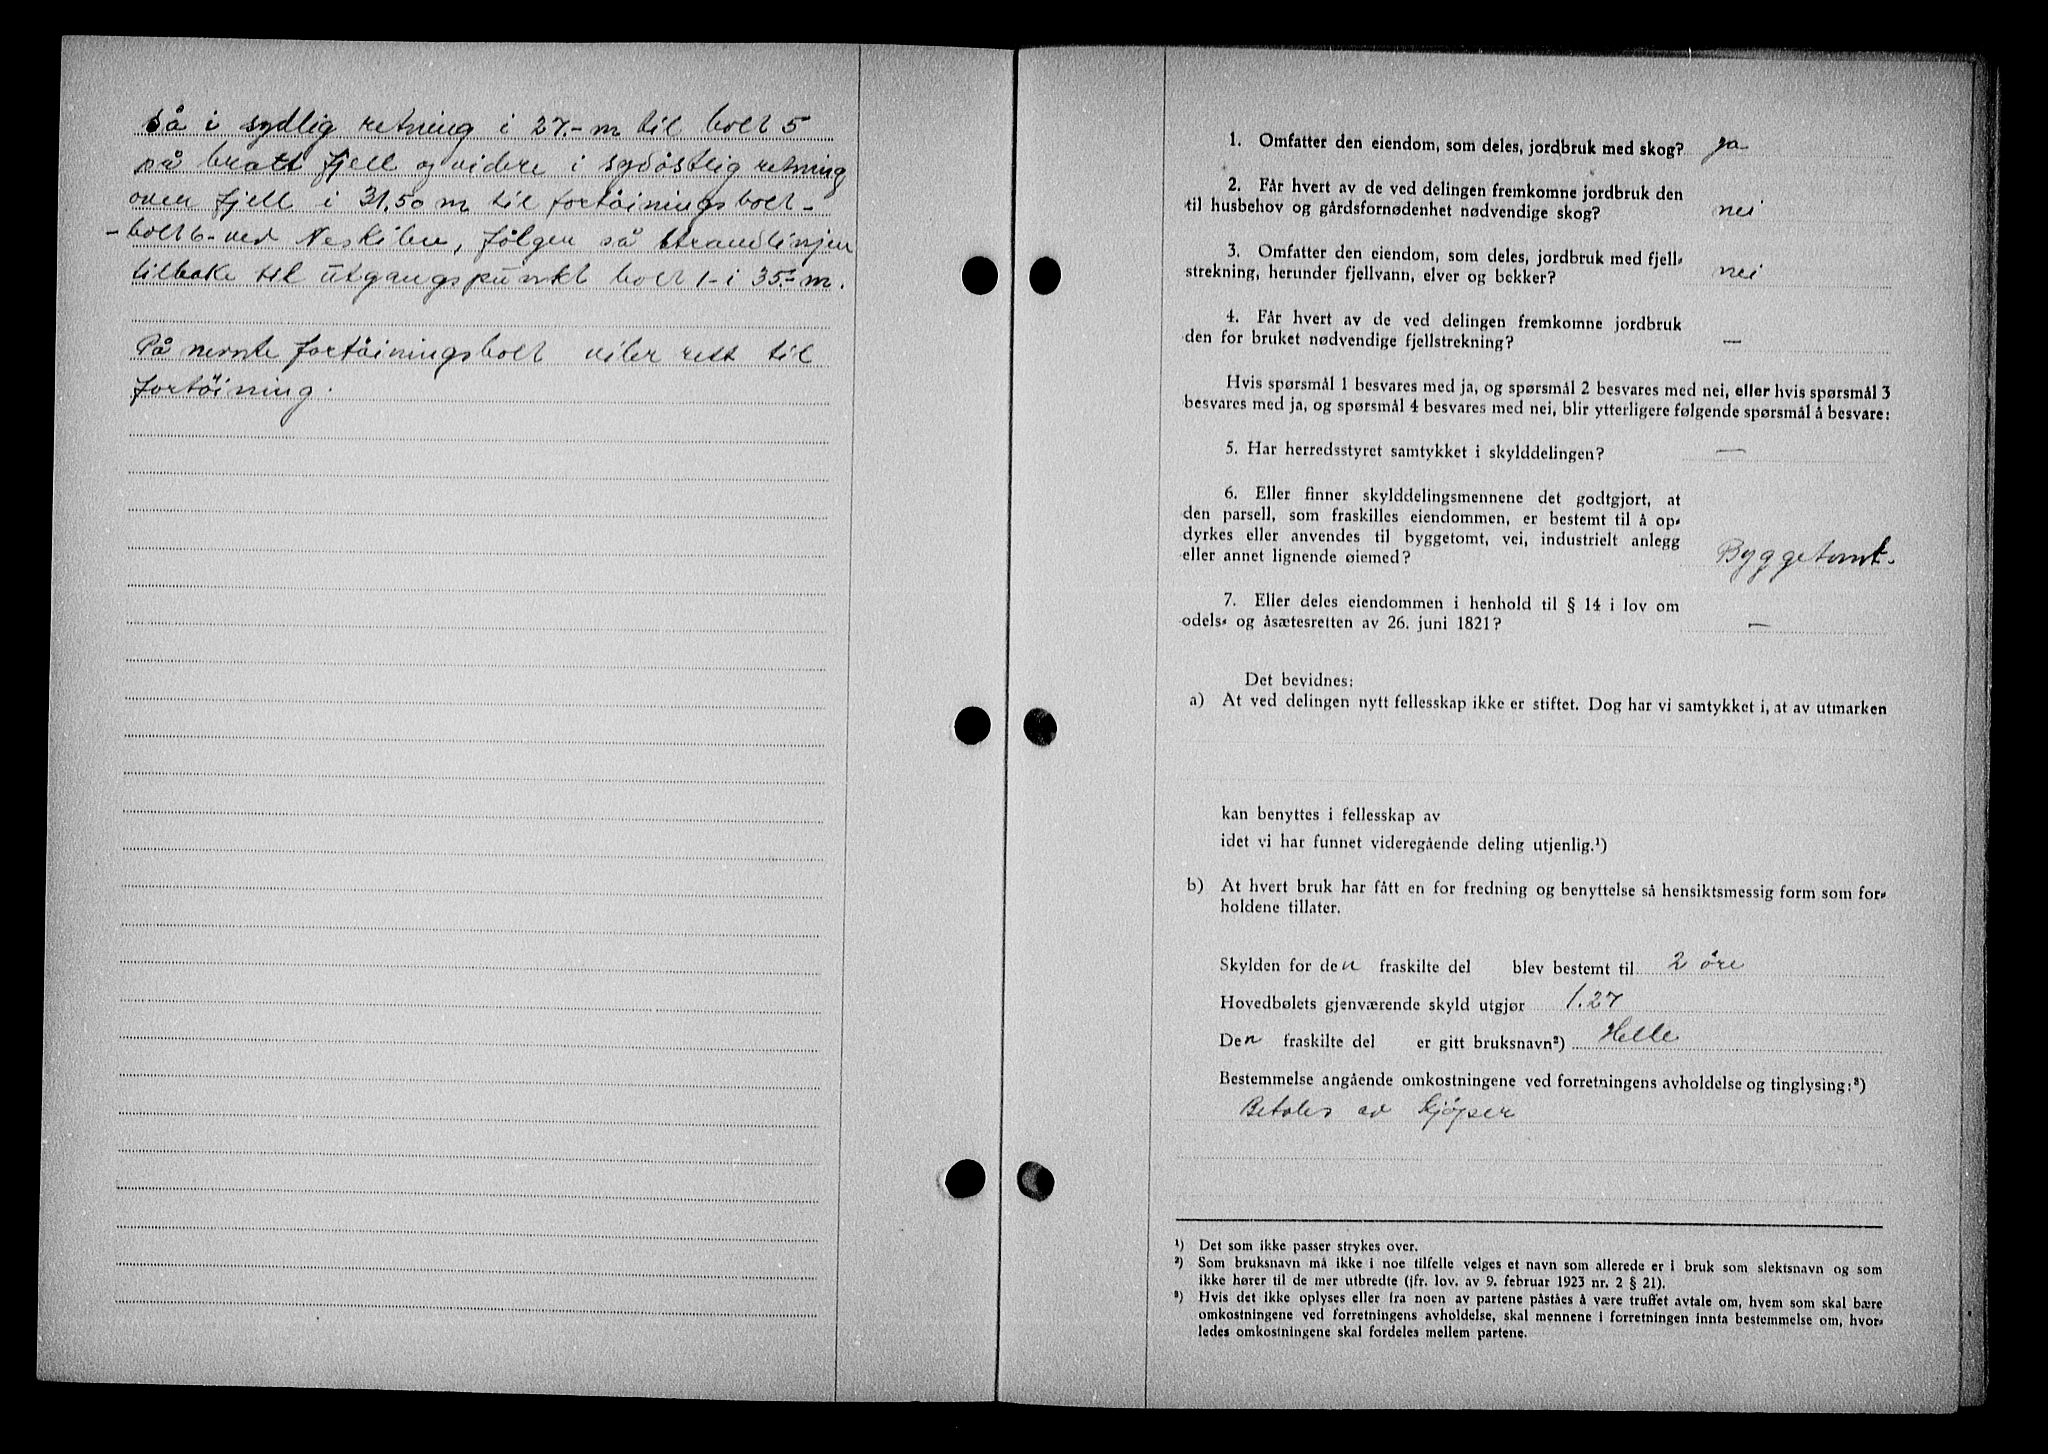 så i sydlig retning i 27.- m til bolt 5
på bratt fjell og videre i sydöstlig retning
over fjell i 31.50 m til fortöiningsbolt -
- bolt 6 - ved Neskilen, fölger så strandlinjen
tilbake til utgangspunkt bolt 1 - i 35.- m.
På nevnte fortöiningsbolt viler rett til
fortöining.
1. Omfatter den eiendom, som deles, jordbruk med skog? ja
2. Får hvert av de ved delingen fremkomne jordbruk den
til husbehov og gårdsfornødenhet nødvendige skog? nei
3. Omfatter den eiendom, som deles, jordbruk med fjell-
strekning, herunder fjellvann, elver og bekker? nei
4. Får hvert av de ved delingen fremkomne jordbruk
den for bruket nødvendige fjellstrekning? —
Hvis spørsmål 1 besvares med ja, og spørsmål 2 besvares med nei, eller hvis spørsmål 3
besvares med ja, og spørsmål 4 besvares med nei, blir ytterligere følgende spørsmål å besvare:
5. Har herredsstyret samtykket i skylddelingen? —
6. Eller finner skylddelingsmennene det godtgjort, at
den parsell, som fraskilles eiendommen, er bestemt til å op-
dyrkes eller anvendes til byggetomt, vei, industrielt anlegg
eller annet lignende øiemed? Byggetomt.
7. Eller deles eiendommen i henhold til § 14 i lov om
odels- og åsætesretten av 26. juni 1821? —
Det bevidnes:
a) At ved delingen nytt fellesskap ikke er stiftet. Dog har vi samtykket i, at av utmarken
kan benyttes i fellesskap av
idet vi har funnet videregående deling utjenlig.¹)
b) At hvert bruk har fått en for fredning og benyttelse så hensiktsmessig form som for-
holdene tillater.
Skylden for den fraskilte del blev bestemt til 2 öre
Hovedbølets gjenværende skyld utgjør 1.27
Den fraskilte del er gitt bruksnavn²) Helle
Bestemmelse angående omkostningene ved forretningens avholdelse og tinglysing:³)
Betales av kjöper
¹) Det som ikke passer strykes over.
²) Som bruksnavn må ikke i noe tilfelle velges et navn som allerede er i bruk som slektsnavn og som
ikke hører til de mer utbredte (jfr. lov. av 9. februar 1923 nr. 2 § 21).
³) Hvis det ikke oplyses eller fra noen av partene påståes å være truffet avtale om, hvem som skal bære
omkostningene ved forretningens avholdelse, skal mennene i forretningen innta bestemmelse om, hvor-
ledes omkostningene skal fordeles mellem partene.